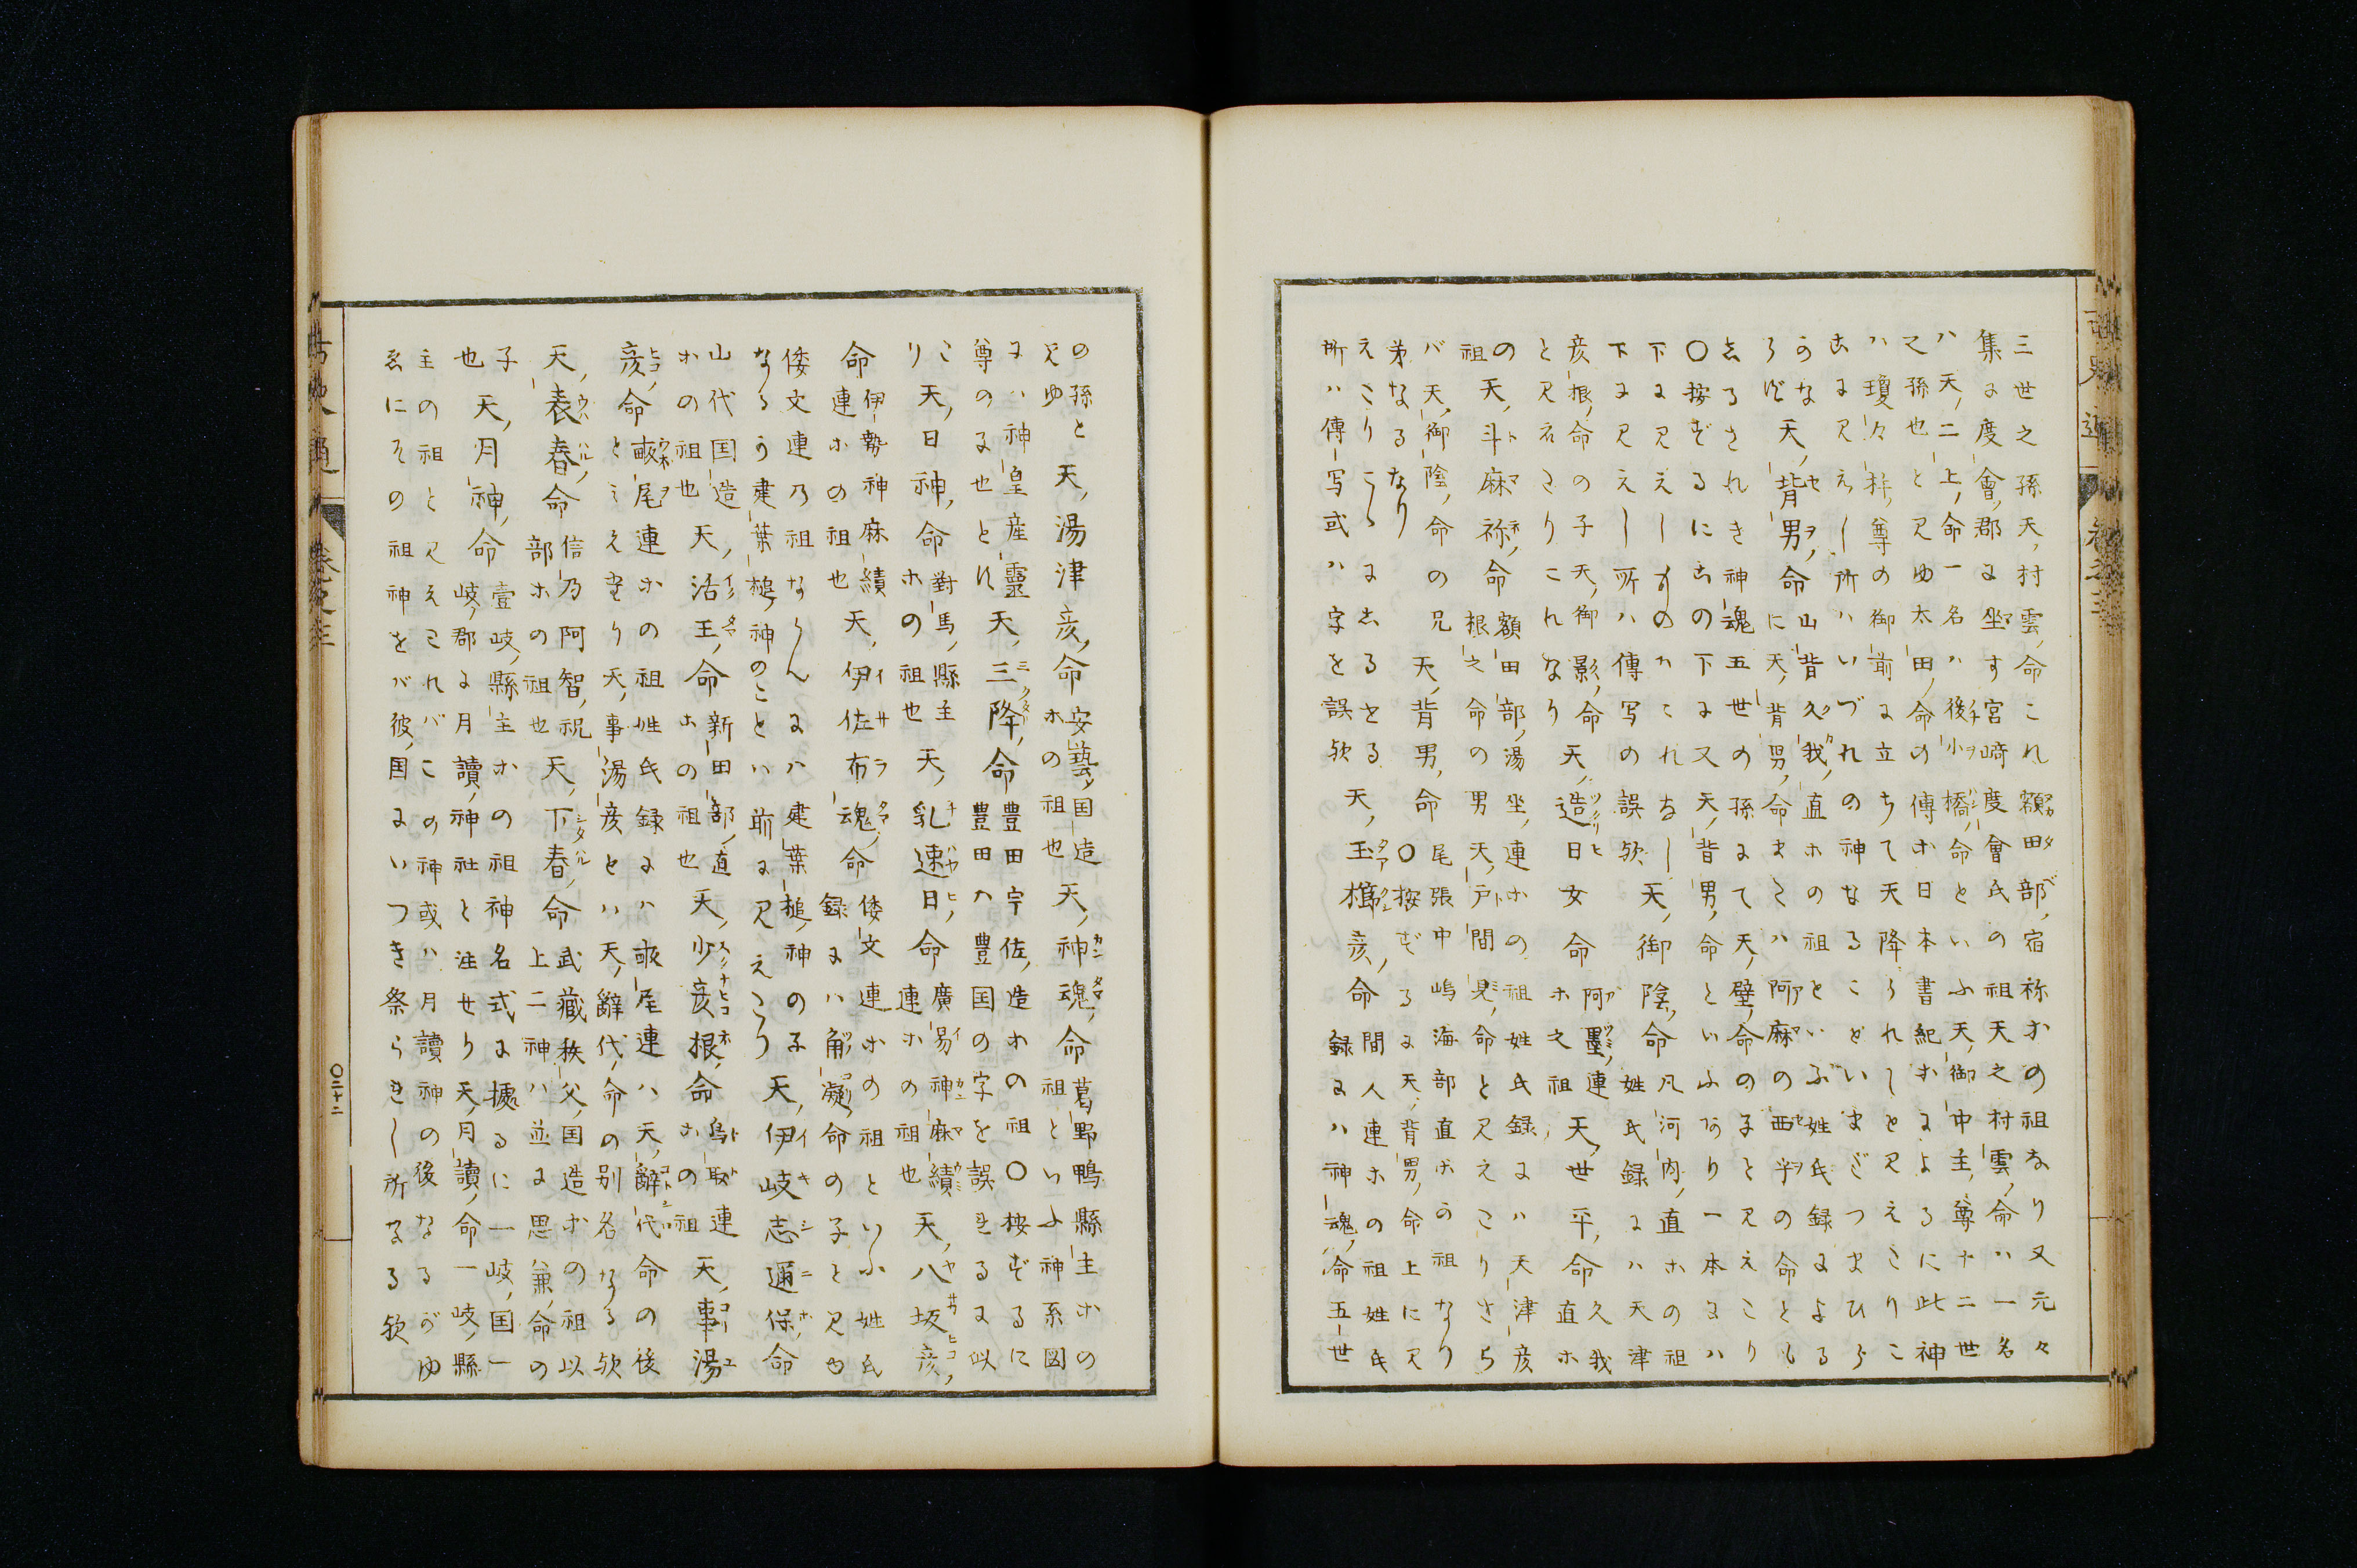 三世之孫天村雲命これ額田部宿祢ホの祖なり又元々
集に度會郡に坐す宮﨑度會氏の祖天之村雲命ハ一名
ハ天二上命一名ハ後小橋命といふ天御中主尊十二世
之孫也と見ゆ太田命の傳ホ日本書紀ホによるに此神
ハ瓊々杵尊の御前に立ちて天降られしと見えたりこ
こに見えし所ハいづれの神なることをいまだつまひら
うなら
ず 天背男命
山背久我直ホの祖といふ姓氏録による
に天背男命またハ阿麻の西乎の命とも
しるされき神魂五世の孫にて天壁命の子と見えたり
〇按ずるにこの下に又天背男命といふあり一本にハ
下に見えしものハこれなし
下に見えし所ハ傳写の誤欤
天御陰命
凡河内直ホの祖
姓氏録にハ天津
彦根命の子天御影命
と見えたりこれなり
天造日女命
阿墨連
ホ之祖
天世平命
久我
直ホ
の
祖
天斗麻祢命
額田部湯坐連ホの祖姓氏録にハ天津彦
根之命の男天戸間見命と見えたりさら
バ天御陰命の兄
弟なるなり
天背男命
尾張中嶋海部直ホの祖なり
〇按ずるに天背男命上に見
えたりこゝにしるせる
所ハ傳写或ハ字を誤欤
天玉櫛彦命
間人連ホの祖姓氏
録にハ神魂命五世
の孫と
見ゆ
天湯津彦命
安藝国造
ホの祖也
天神魂命
葛野鴨縣主ホの
祖といふ神系図
にハ神皇産靈
尊のる也とハ
天三降命
豊田宇佐造ホの祖〇按ずるに
豊田ハ豊国の字を誤れるに似
た
り
天日神命
對馬縣主
ホの祖也
天乳速日命
廣湯神麻績
連ホの祖也
天八坂彦
命
伊勢神麻績
連ホの祖也
天伊佐布魂命
倭文連ホの祖といふ姓氏
録にハ角凝命の子と見ゆ
倭文連乃祖ならんにハ建葉槌神の子
なるう建葉槌神のことハ前に見えたり
天伊岐志邇保命
山代国造
ホの祖也
天活玉命
新田部直
ホの祖也
天少彦根命
鳥取連
ホの祖
天事湯
彦命
畝尾連ホの祖姓氏録にハ畝尾連ハ天辭代命の後
と見えたり天事湯彦とハ天辭代命の別名なる欤
天表春命
信乃阿智祝
部ホの祖也
天下春命
武藏秩父国造ホの祖以
上二神ハ並に思兼命の
子
也
天月神命
壹岐縣主ホの祖神名式に據るに一岐国一
岐郡に月讀神社と注せり天月讀命一岐縣
主の祖と見えたれバこの神或ハ月讀神の後なるがゆ
ゑにその祖神をバ彼国にいつき祭られし所なる欤
〇二十二